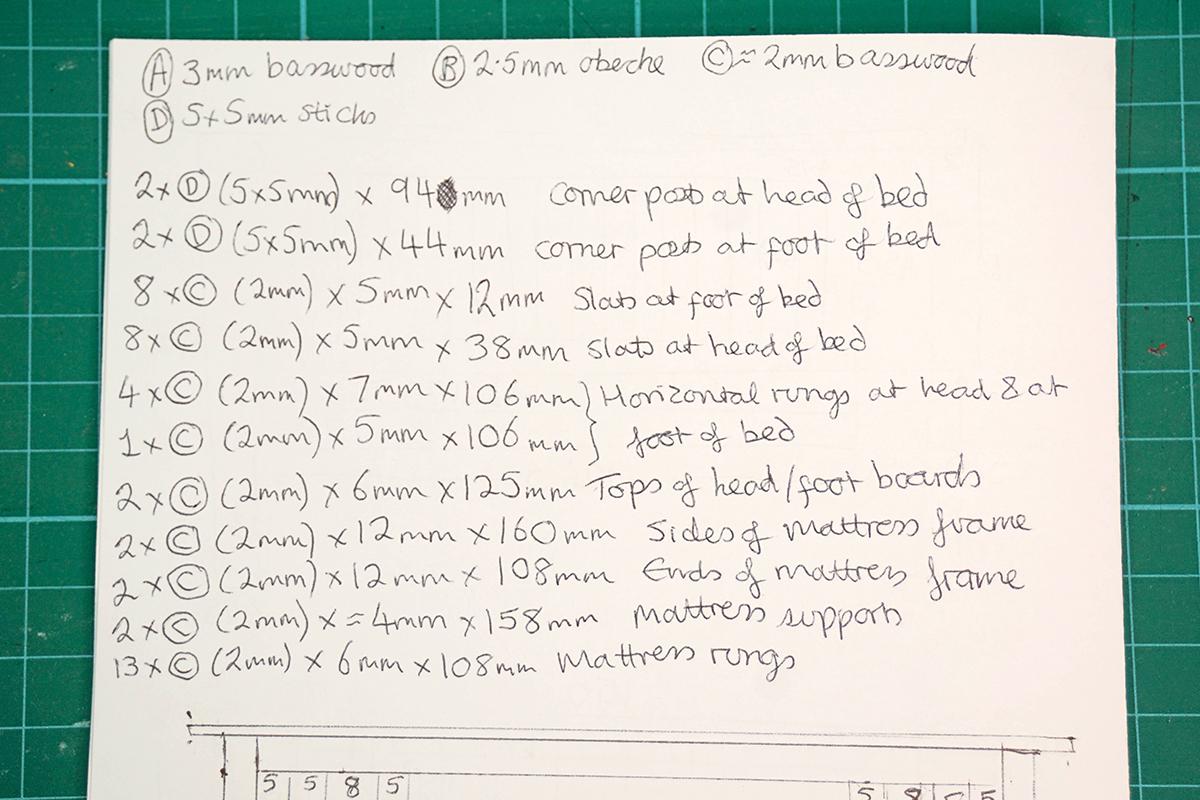 Ⓐ 3mm basswood Ⓑ 2.5mm obeche Ⓒ ≈ 2mm basswood
Ⓓ 5x5mm sticks
2x Ⓓ (5x5mm) x 94 mm corner posts at head of bed
2x Ⓓ (5x5mm) x 44mm corner posts at foot of bed
8 x Ⓒ (2mm) x 5mm x 12mm Slats at foot of bed
8x Ⓒ (2mm) x 5mm x 38mm slats at head of bed
4 x Ⓒ (2mm) x 7mm x 106mm } Horizontal rungs at head & at
1x Ⓒ (2mm) x 5mm x 106mm } foot of bed
2x Ⓒ (2mm) x 6mm x 125mm Tops of head/foot boards
2x Ⓒ (2mm) x 12mm x 160mm Sides of mattress frame
2x Ⓒ (2mm) x 12mm x 108mm Ends of mattress frame
2x Ⓒ (2mm) x ≈ 4mm x 158mm mattress supports
13 x Ⓒ (2mm) x 6mm x 108mm Mattress rungs
5 5 8 5 5 8 5 5